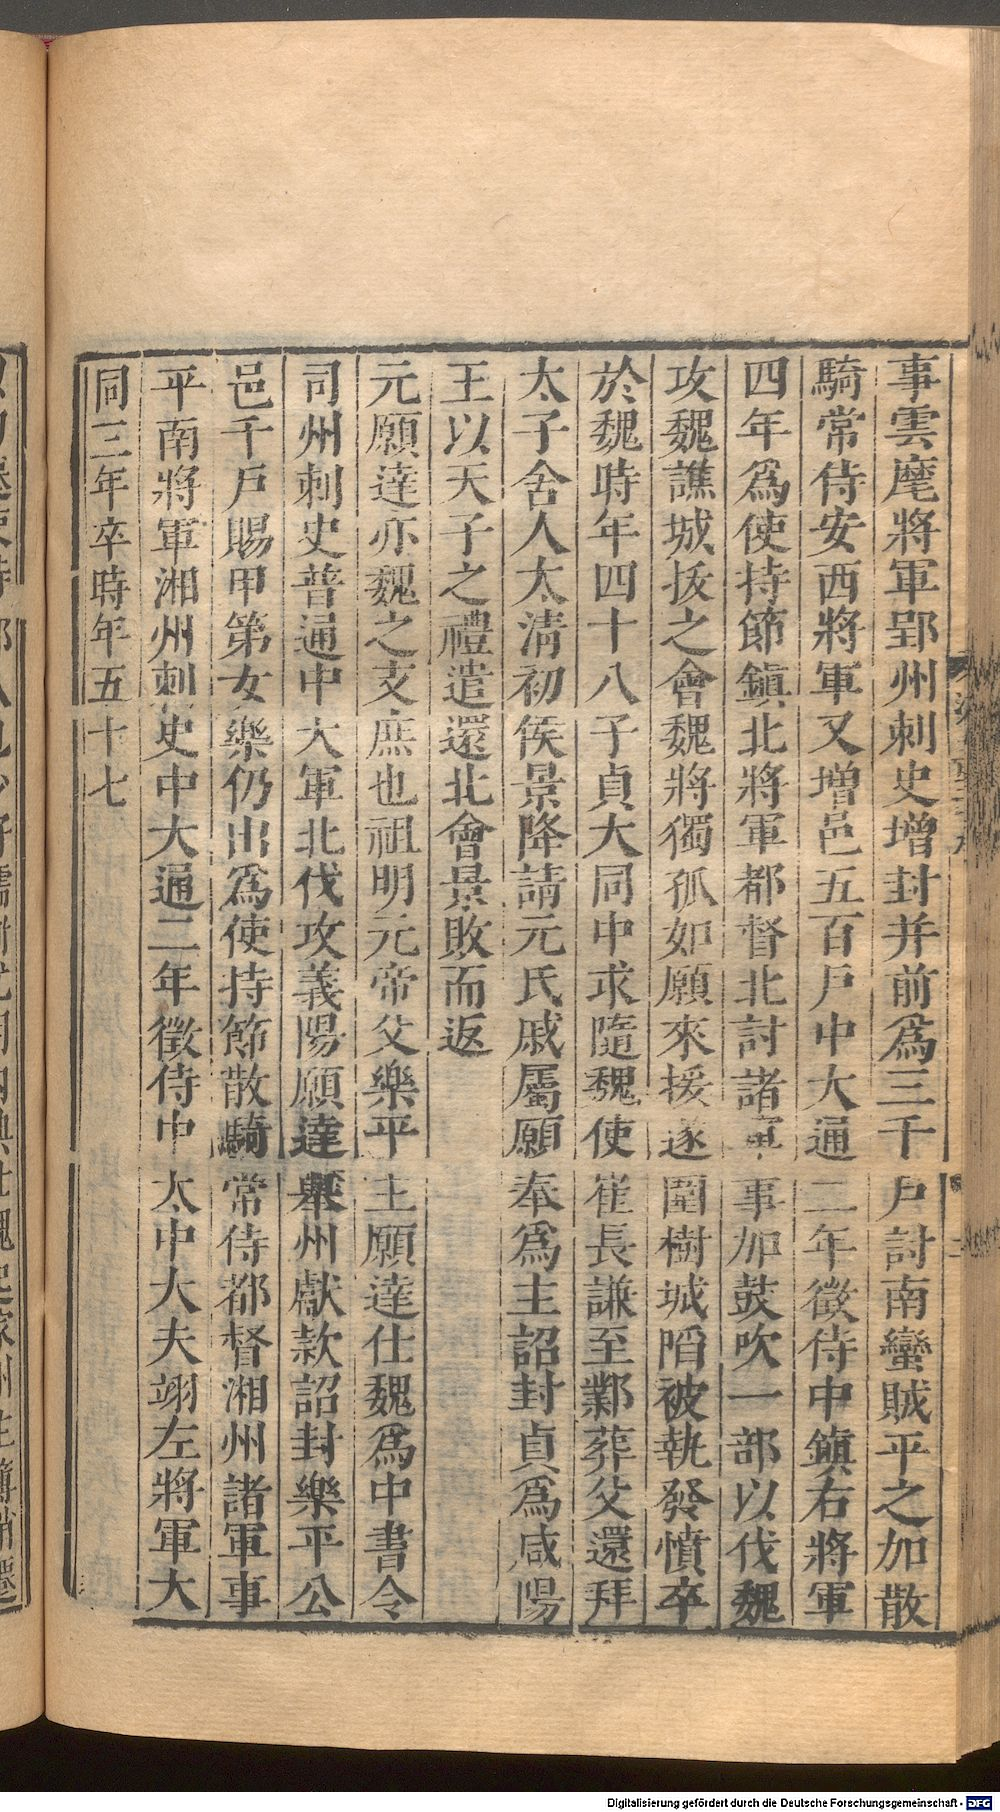 事雲麾將軍郢州刺史增封并前爲三千戶討南蠻賊平之加散
騎常侍安西將軍又增邑五百戶中大通二年徵侍中鎭右將軍
四年爲使持節鎭北將軍都督北討諸軍事加鼓吹一部以伐魏
攻魏譙城拔之會魏將獨孤如願來援遂圍樹城陷被執發憤卒
於魏時年四十八子貞大同中求隨魏使崔長謙至鄴葬父還拜
太子舍人太淸初侯景降請元氏戚屬願奉爲主詔封貞爲咸陽
王以天子之禮遣還北會景敗而返
元願達亦魏之支庶也祖明元帝父樂平王願達仕魏爲中書令
司州刺史普通中大軍北伐攻義陽願達舉州獻款詔封樂平公
邑千戶賜甲第女樂仍出爲使持節散騎常侍都督湘州諸軍事
平南將軍湘州刺史中大通二年徵侍中太中大夫翊左將軍大
同三年卒時年五十七
Digitalisierung gefördert durch die Deutsche Forschungsgemeinschaft - DFG